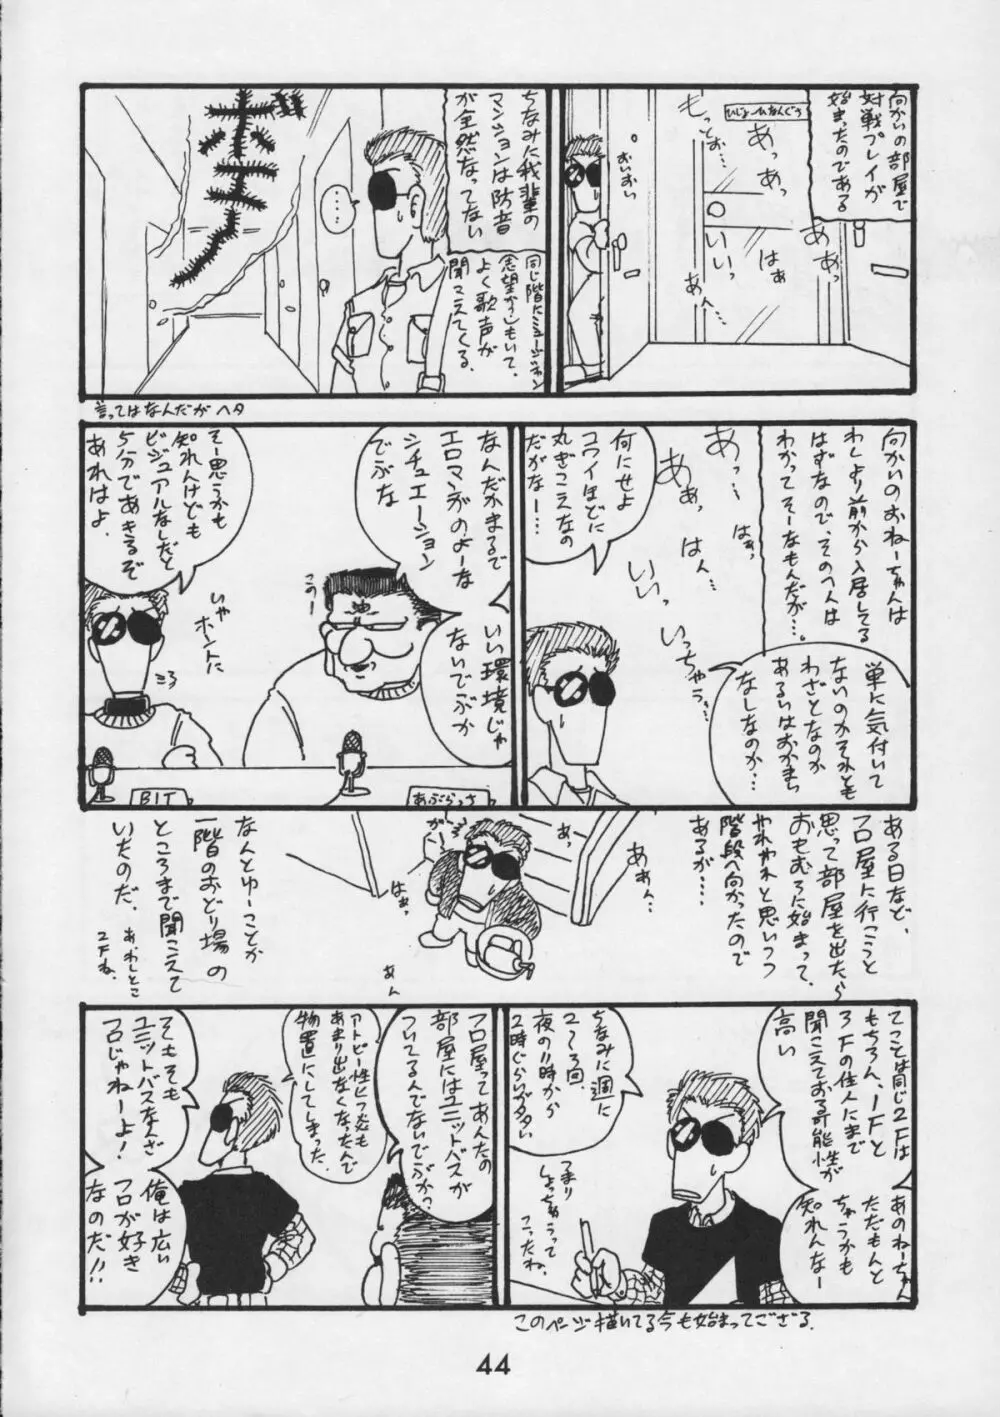 向かいの部屋で
対戦プレイが
始まったのである
ひじょーひなんぐち
もっとお…
あっあっ
おいおい
いいっ
ああっ
はぁ
あん…
ちなみに我輩の
マンションは防音
が全然なってない
同じ階にミュージシャン
志望がっもいて、
よく歌声が
聞こえてくる。
…
言ってはなんだが ヘタ
向かいのおねーちゃんは
わしより前から入居してる
はずなので、そのヘんは
わかってそーなもんだが…。
単に気付いて
ないのかそれとも
わざとなのか
あるいはおかまい
なしなのか…
あっ…
はぁっ
あぁっ
はん…
いいっ
いっちゃうぅ…
何にせよ
コワイほどに
丸ぎこえなの
だがなー…
なんだかまるで
エロマンガのよーな
シチュエーション
でぶな
いい環境じゃ
ないでぶか
そー思うかも
知れんけども
ビジュアルなしだと
5分であきるぞ
あれはよ
いや
ホントに
こうー
BIT
あぶらっさ
ある日など、
フロ屋に行こうと
思って部屋を出たら
おもむろに始まって、
やれやれと思いつつ
階段へ向かったので
あるが…
あっ
ああん…
がーん
はぁっ
あん
なんとゆーことか
一階のおどり場の
ところまで聞こえて
いたのだ。
あ、わしんとこ
2Fね。
てことは同じ2Fは
もちろん、1Fと
3Fの住人にまで
聞こえておる可能性が
高い
あのねーちゃん
ただもんと
ちゃうかも
知れんなー
ちなみに週に
2〜3回、
夜の11時から
2時ぐらいがタタい
つまり
しょっちゅうって
こったね。
このページ描いてる今も始まってござる。
フロ屋ってあんたの
部屋にはユニットバスが
ついてるんでないでぶか?
アトピー性ヒフ炎も
あまり出なくなったんで
物置にしてしまった。
そもそも
ユニットバスなんざ
フロじゃねーよ!
俺は広い
フロが好き
なのだ!!
44